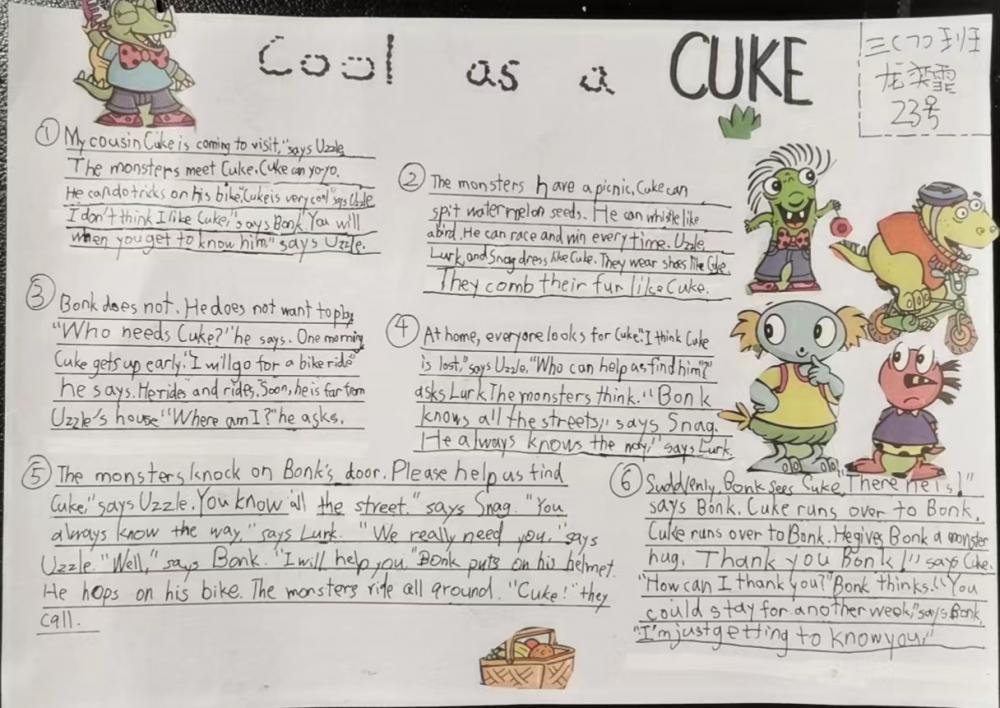 Cool as a CUKE
三(7)班
龙奕霏
23号
① My cousin Cuke is coming to visit," says Uzzle
The monsters meet Cuke. Cuke can yo-yo.
He can do tricks on his bike. "Cuke is very cool" says Uzzle
I don't think I like Cuke," says Bonk "You will
when you get to know him" says Uzzle.
② The monsters have a picnic. Cuke can
spit watermelon seeds. He can whistle like
a bird. He can race and win every time. Uzzle,
Lurk, and Snag dress like Cuke. They wear shoes like Cuke.
They comb their fur like Cuke.
③ Bonk does not. He does not want to play
"Who needs Cuke?" he says. One morning
Cuke gets up early. "I will go for a bike ride"
he says. He rides and rides. Soon, he is far from
Uzzle's house "Where am I?" he asks.
④ At home, everyone looks for Cuke. "I think Cuke
is lost," says Uzzle. "Who can help us find him?"
asks Lurk The monsters think. "Bonk
knows all the streets," says Snag.
He always knows the way," says Lurk.
⑤ The monsters knock on Bonk's door. Please help us find
Cuke," says Uzzle. You know all the street." says Snag. "You
always know the way," says Lurk. "We really need you." says
Uzzle. "Well," says Bonk. "I will help you." Bonk puts on his helmet.
He hops on his bike. The monsters ride all around. "Cuke!" they
call.
⑥ Suddenly, Bonk sees Cuke. "There he is!"
says Bonk. Cuke runs over to Bonk.
Cuke runs over to Bonk. He gives Bonk a monster
hug. Thank you Bonk!" says Cuke.
"How can I thank you?" Bonk thinks. "You
could stay for another week," says Bonk.
"I'm just getting to know you."